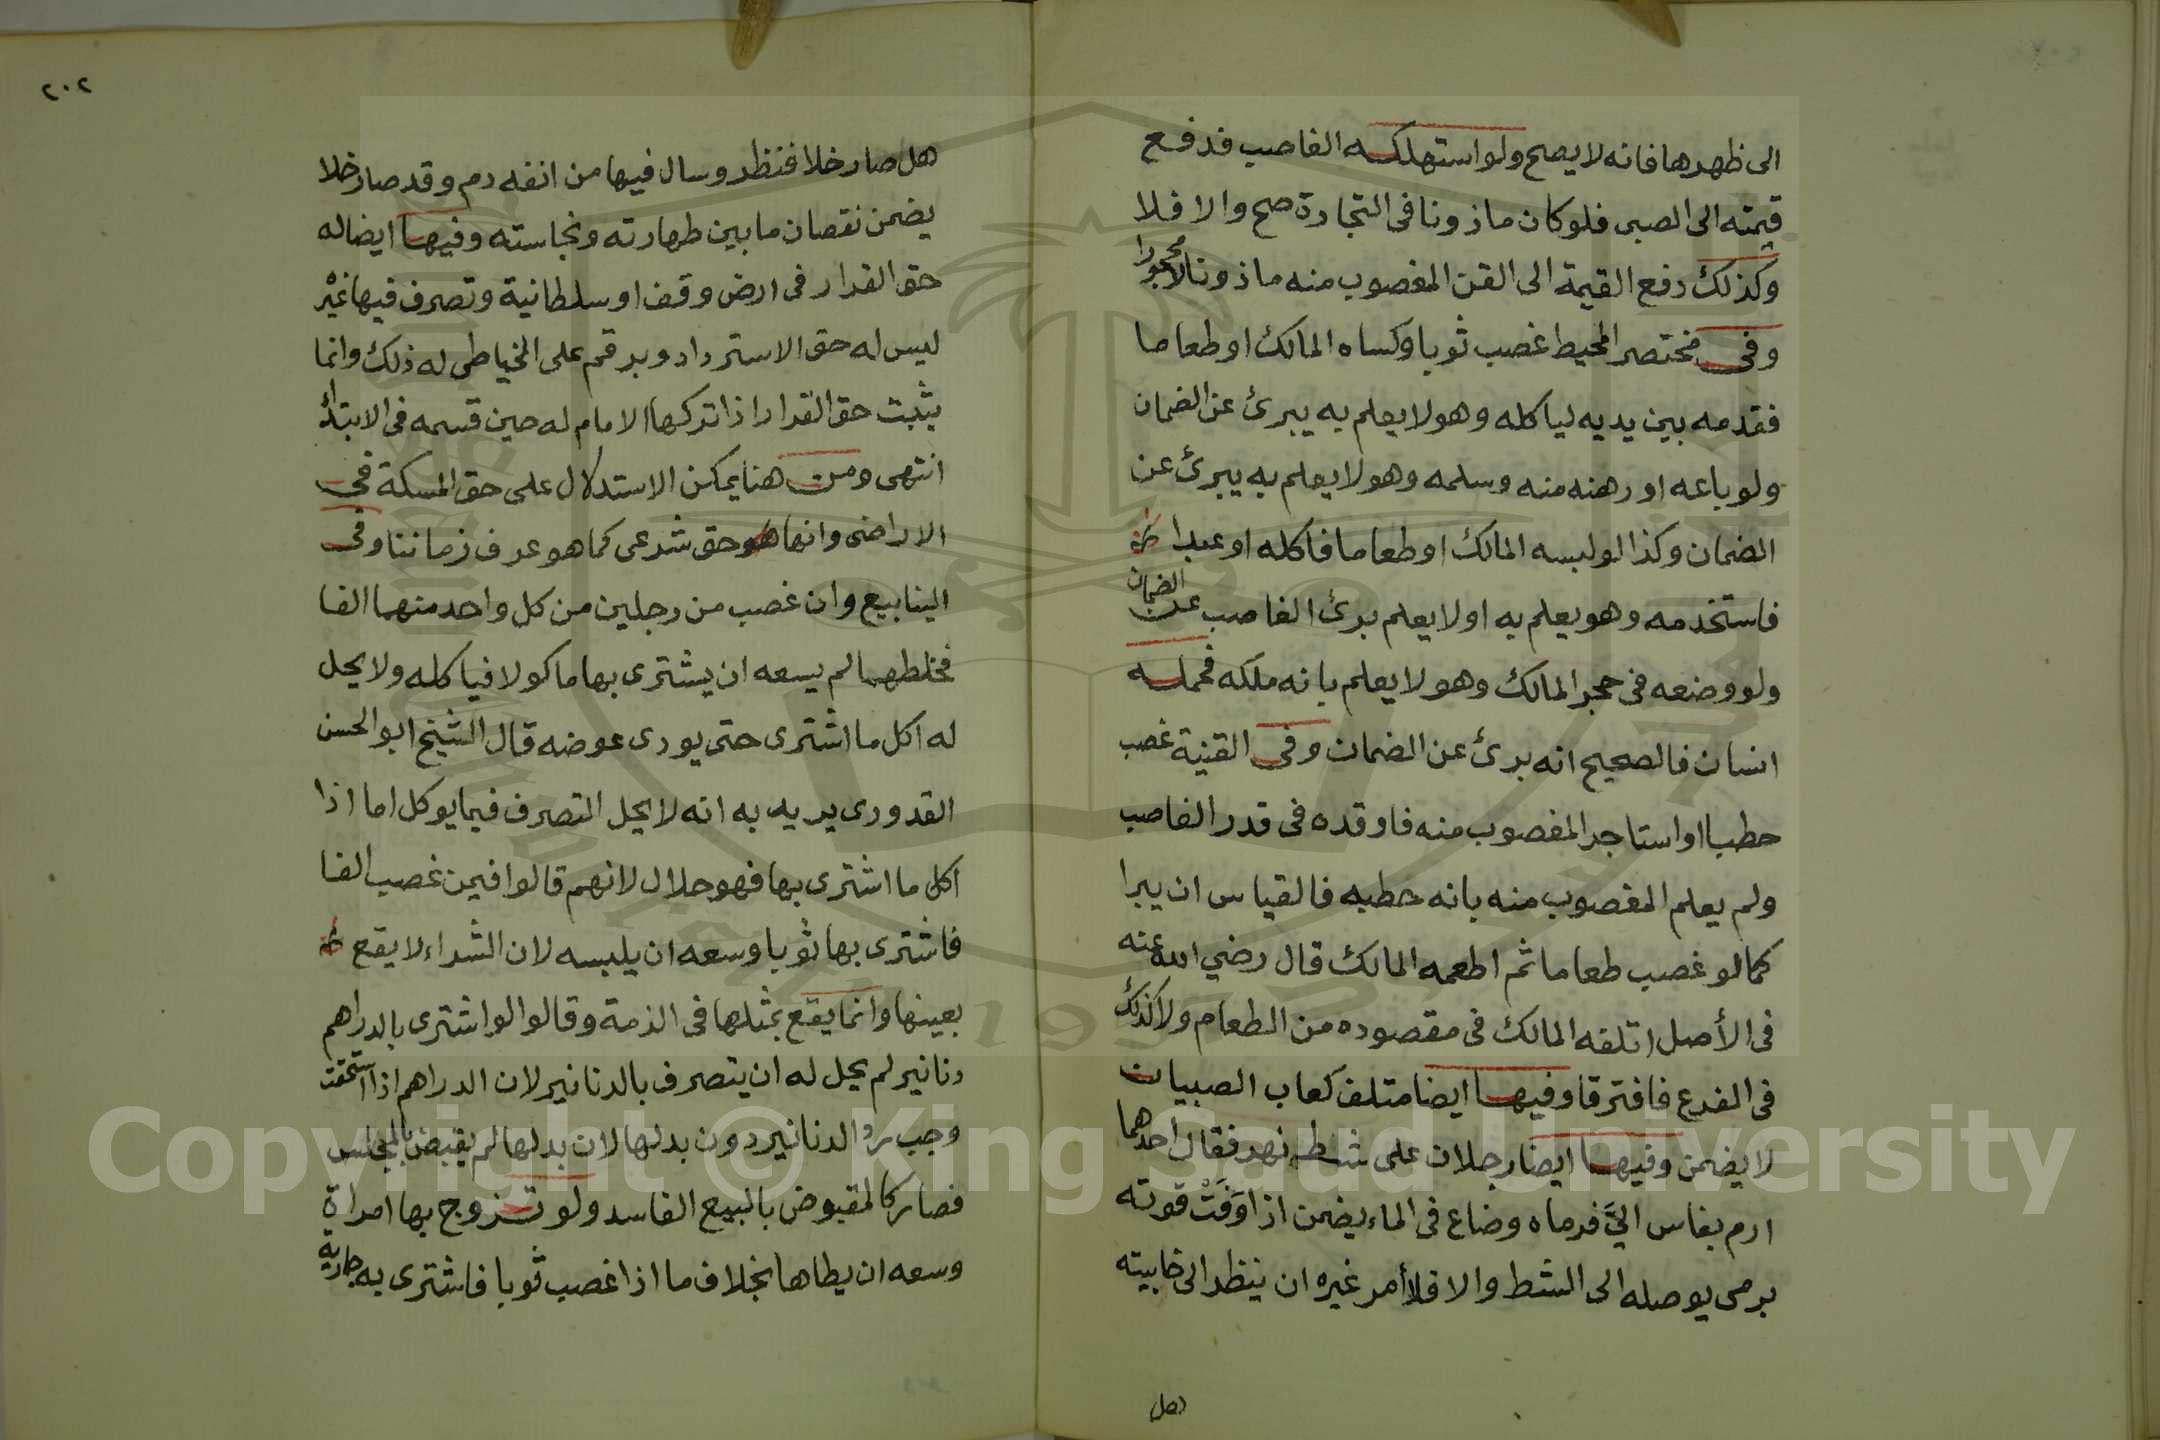 الى ظهرها فانه لا يصح ولو استهلكه الغاصب فدفع
قيمته الى الصبى فلو كان ماذونا فى التجارة صح والا فلا
وكذلك دفع القيمة الى القن المغصوب منه ماذونا لا محجورا
وفى مختصر المحيط غصب ثوبا وكساه المالك او طعاما
فقدمه بين يديه لياكله وهو لا يعلم به يبرئ عن الضمان
ولو باعه او رهنه منه وسلمه وهو لا يعلم به يبرئ عن
الضمان وكذا لو لبسه المالك او طعاما فاكله او عبدا
فاستخدمه وهو يعلم به او لا يعلم برئ الغاصب عن الضمان
ولو وضعه فى حجر المالك وهو لا يعلم بانه ملكه فحمله
انسان فالصحيح انه برئ عن الضمان وفى القنية غصب
حطبا او استاجر المغصوب منه فاوقده فى قدر الغاصب
ولم يعلم المغصوب منه بانه حطبه فالقياس ان يبرا
كما لو غصب طعاما ثم اطعمه المالك قال رضي الله عنه
فى الأصل اتلفه المالك فى مقصوده من الطعام ولا كذلك
فى الفرع فافترقا وفيها ايضا متلف كعاب الصبيان
لا يضمن وفيها ايضا رجلان على شط نهر فقال احدهما
ارم بفاس اليَّ فرماه وضاع فى الماء يضمن اذا وَفَتْ قوته
برمى يوصله الى الشط والا فلا أمر غيره ان ينظر الى خابيته
هل
٢٠٢
هل صار خلا فنظر وسال فيها من انفه دم وقد صار خلا
يضمن نقصان ما بين طهارته ونجاسته وفيها ايضا له
حق القرار فى ارض وقف او سلطانية وتصرف فيها غيْر
ليس له حق الاسترداد وبرقم على الخياطى له ذلك وانما
يثبت حق القرار اذا تركها الامام له حين قسمه فى الابتدأ
انتهى ومن هنا يمكن الاستدلال على حق المسكة فى
الاراضى وانها هو حق شرعى كما هو عرف زماننا وفى
الينابيع وان غصب من رجلين من كل واحد منهما الفا
فخلطهما لم يسعه ان يشترى بها ماكولا فياكله ولا يحل
له اكل ما اشترى حتى يودى عوضه قال الشيخ ابو الحسن
القدورى يريد به انه لا يحل التصرف فيما يوكل اما اذا
اكل ما اشترى بها فهو حلال لانهم قالوا فيمن غصب الفا
فاشترى بها ثوبا وسعه ان يلبسه لان الشراء لا يقع
بعينها وانما يقع بمثلها فى الذمة وقالوا لو اشترى بالدراهم
دنانير لم يحل له ان يتصرف بالدنانير لان الدراهم اذا استحقت
وجب رد الدنانير دون بدلها لان بدلها لم يقبض بالمجلس
فصار كالمقبوض بالبيع الفاسد ولو تزوج بها امراة
وسعه ان يطاها بخلاف ما اذا غصب ثوبا فاشترى به جارية
Copyright © King Saud University